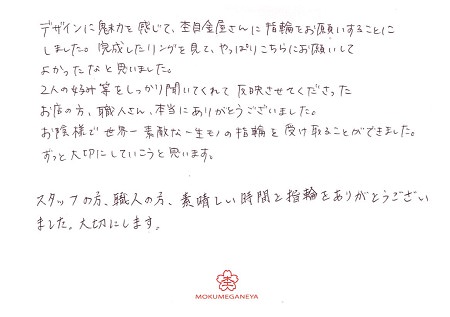 デザインに魅力を感じて、杢目金屋さんに指輪をお願いすることに
しました。完成したリングを見て、やっぱりこちらにお願いして
よかったなと思いました。
2人の好み等をしっかり聞いてくれて反映させてくださった
お店の方、職人さん、本当にありがとうございました。
お陰様で世界一素敵な一生モノの指輪を受け取ることができました。
ずっと大切にしていこうと思います。
スタッフの方、職人の方、素晴しい時間と指輪をありがとうござい
ました。大切にします。
杢
MOKUMEGANEYA